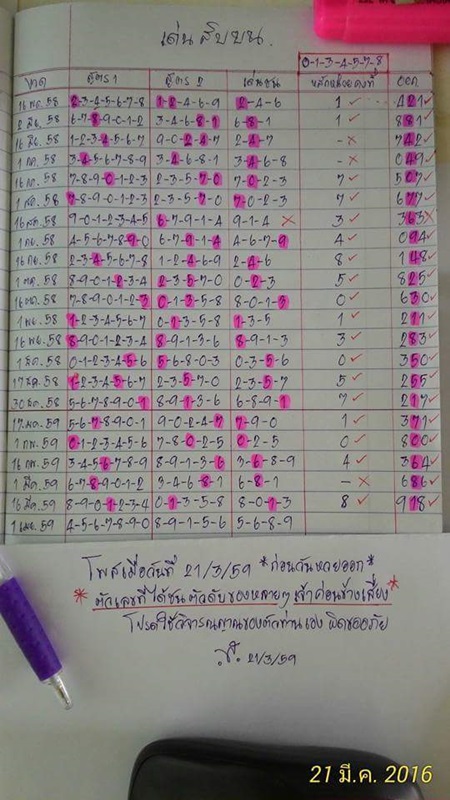 เด่นสิบบน.
0-1-3-4-5-7-8
งวด สูตร 1 สูตร 2 เด่นชน หลักหน่วยคงที่ ออก
16 พค. 58 2-3-4-5-6-7-8 1-2-4-6-9 2-4-6 1 ✓ 421 ✓
2 มิย. 58 6-7-8-9-0-1-2 3-4-6-8-1 6-8-1 1 ✓ 881 ✓
16 มิย. 58 1-2-3-4-5-6-7 9-0-2-4-7 2-4-7 - × 742 ✓
1 กค. 58 3-4-5-6-7-8-9 3-4-6-8-1 3-4-6-8 - × 049 ✓
16 กค. 58 7-8-9-0-1-2-3 2-3-5-7-0 7-0-2-3 7 ✓ 507 ✓
1 สค. 58 7-8-9-0-1-2-3 2-3-5-7-0 7-0-2-3 7 ✓ 677 ✓
16 สค. 58 9-0-1-2-3-4-5 6-7-9-1-4 9-1-4 × 3 ✓ 363 ×
1 กย. 58 4-5-6-7-8-9-0 6-7-9-1-4 4-6-7-9 4 ✓ 094 ✓
16 กย. 58 2-3-4-5-6-7-8 1-2-4-6-9 2-4-6 8 ✓ 148 ✓
1 ตค. 58 8-9-0-1-2-3-4 2-3-5-7-0 0-2-3 5 ✓ 825 ✓
16 ตค. 58 7-8-9-0-1-2-3 0-1-3-5-8 8-0-1-3 0 ✓ 630 ✓
1 พย. 58 1-2-3-4-5-6-7 0-1-3-5-8 1-3-5 1 ✓ 211 ✓
16 พย. 58 8-9-0-1-2-3-4 8-9-1-3-6 8-9-1-3 3 ✓ 283 ✓
1 ธค. 58 0-1-2-3-4-5-6 5-6-8-0-3 0-3-5-6 0 ✓ 350 ✓
17 ธค. 58 1-2-3-4-5-6-7 2-3-5-7-0 2-3-5-7 5 ✓ 255 ✓
30 ธค. 58 5-6-7-8-9-0-1 8-9-1-3-6 6-8-9-1 7 ✓ 217 ✓
17 มค. 59 5-6-7-8-9-0-1 9-0-2-4-7 7-9-0 1 ✓ 371 ✓
1 กพ. 59 0-1-2-3-4-5-6 7-8-0-2-5 0-2-5 0 ✓ 800 ✓
16 กพ. 59 3-4-5-6-7-8-9 8-9-1-3-6 3-6-8-9 4 ✓ 364 ✓
1 มีค. 59 6-7-8-9-0-1-2 3-4-6-8-1 6-8-1 - × 686 ✓
16 มีค. 59 8-9-0-1-2-3-4 0-1-3-5-8 8-0-1-3 8 ✓ 918 ✓
1 เมย. 59 4-5-6-7-8-9-0 8-9-1-5-6 5-6-8-9
โพสเมื่อวันที่ 21/3/59 *ก่อนวันหวยออก*
*ตัวเลขที่ได้ชน ตัวดับของหลายๆ เจ้าค่อนข้างเสี่ยง*
โปรดใช้วิจารณญาณของตัวท่านเอง ผิดขออภัย
21/3/59
21 มี.ค. 2016